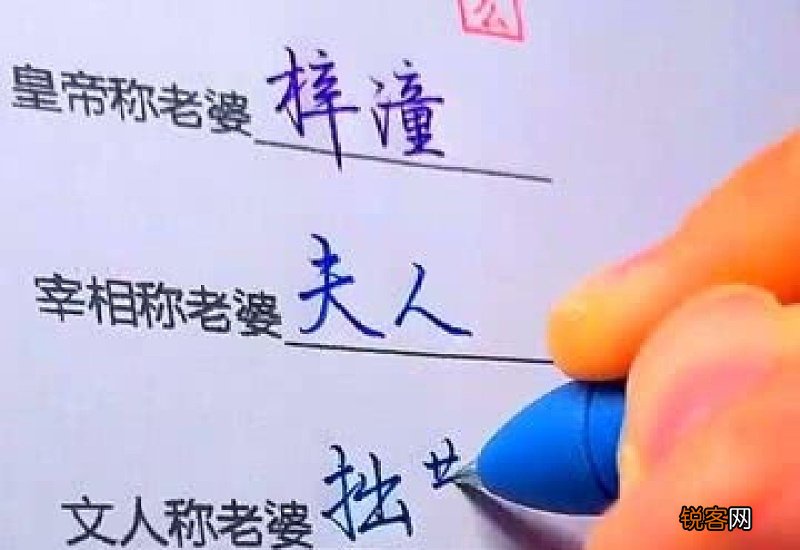 么
皇帝称老婆梓潼
宰相称老婆夫人
文人称老婆拙
锐客网